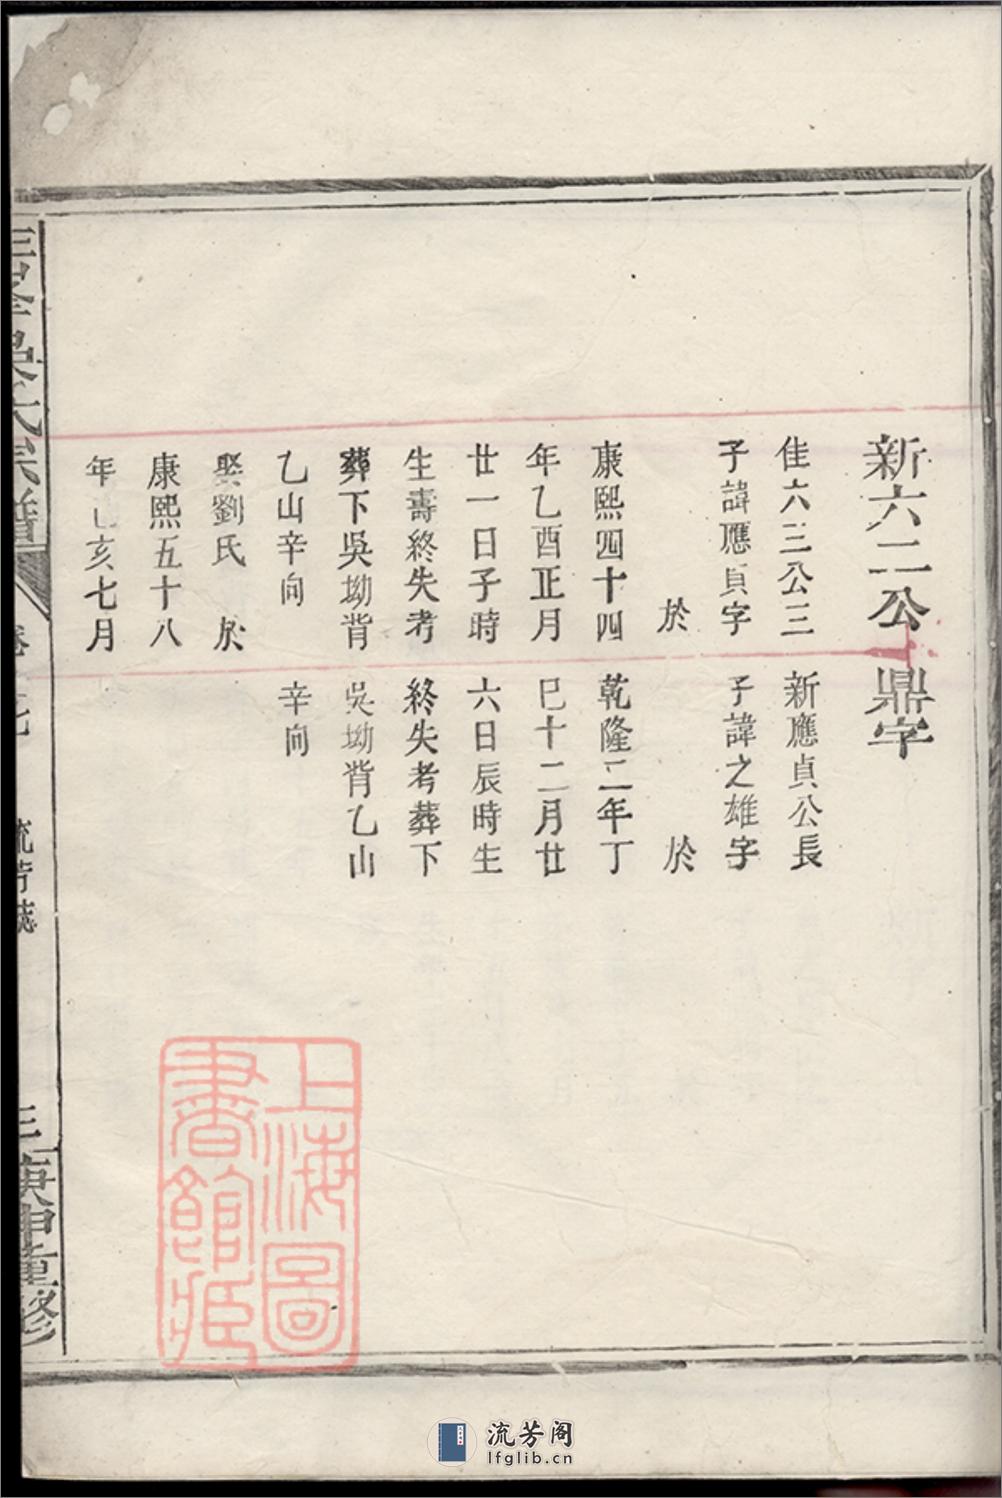 新六二公
鼎字
佳六三公三
子諱應貞字
於
康熙四十四
年乙酉正月
廿一日子時
生壽終失考
葬下吳坳背
乙山辛向
娶劉氏 於
康熙五十八
年己亥七月
新應貞公長
子諱之雄字
於
乾隆二年丁
巳十二月廿
六日辰時生
終失考葬下
吳坳背乙山
辛向
吳氏宗譜
卷
七
三
庚申重修
上海圖
書館藏
流芳阁
lfglib.cn